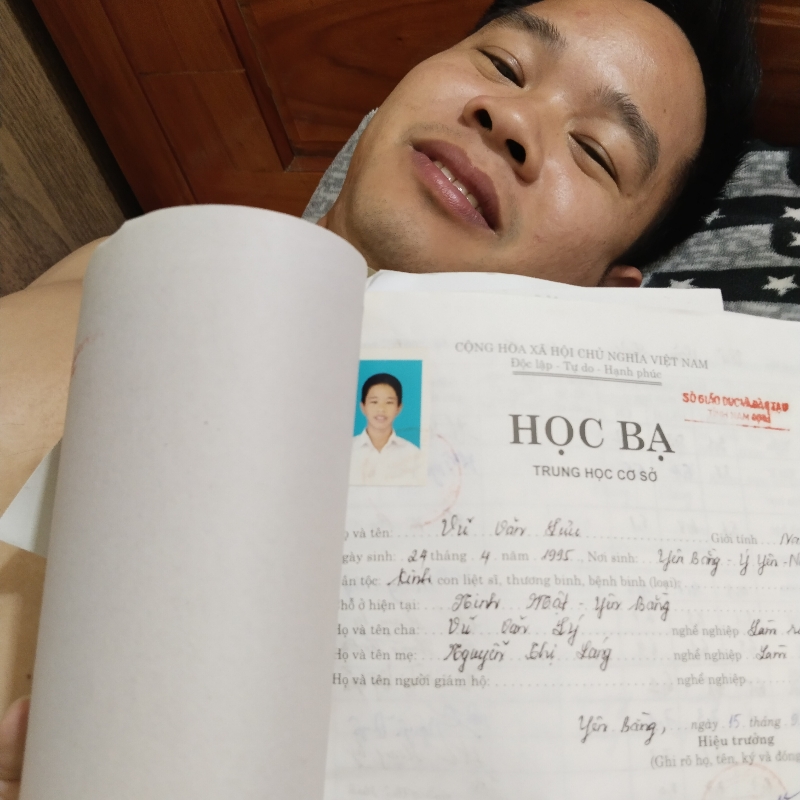 CỘNG HÒA XÃ HỘI CHỦ NGHĨA VIỆT NAM
Độc lập - Tự do - Hạnh phúc
SỞ GIÁO DỤC VÀ ĐÀO TẠO
TỈNH NAM ĐỊNH
HỌC BẠ
TRUNG HỌC CƠ SỞ
ọ và tên: Vũ Văn Giới tính Na
gày sinh: 24 tháng 4 năm 1995 Nơi sinh: Yên Bằng - Ý Yên - N
ân tộc: Kinh con liệt sĩ, thương binh, bệnh binh (loại):
hỗ ở hiện tại: Ninh Mật - Yên Bằng
Họ và tên cha: Vũ Văn Lý nghề nghiệp Làm
Họ và tên mẹ: Nguyễn Thị nghề nghiệp Làm
Họ và tên người giám hộ: nghề nghiệp
Yên Bằng, ngày 15 tháng 9
Hiệu trưởng
(Ghi rõ họ, tên, ký và đóng